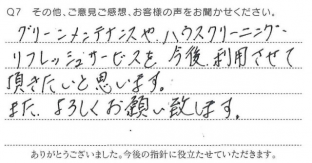 Q7 その他、ご意見ご感想、お客様の声をお聞かせください。
グリーンメンテナンスや、ハウスクリーニング・
リフレッシュサービスを今後、利用させて
頂きたいと思います。
また、よろしくお願い致します。
ありがとうございました。今後の指針に役立たせていただきます。